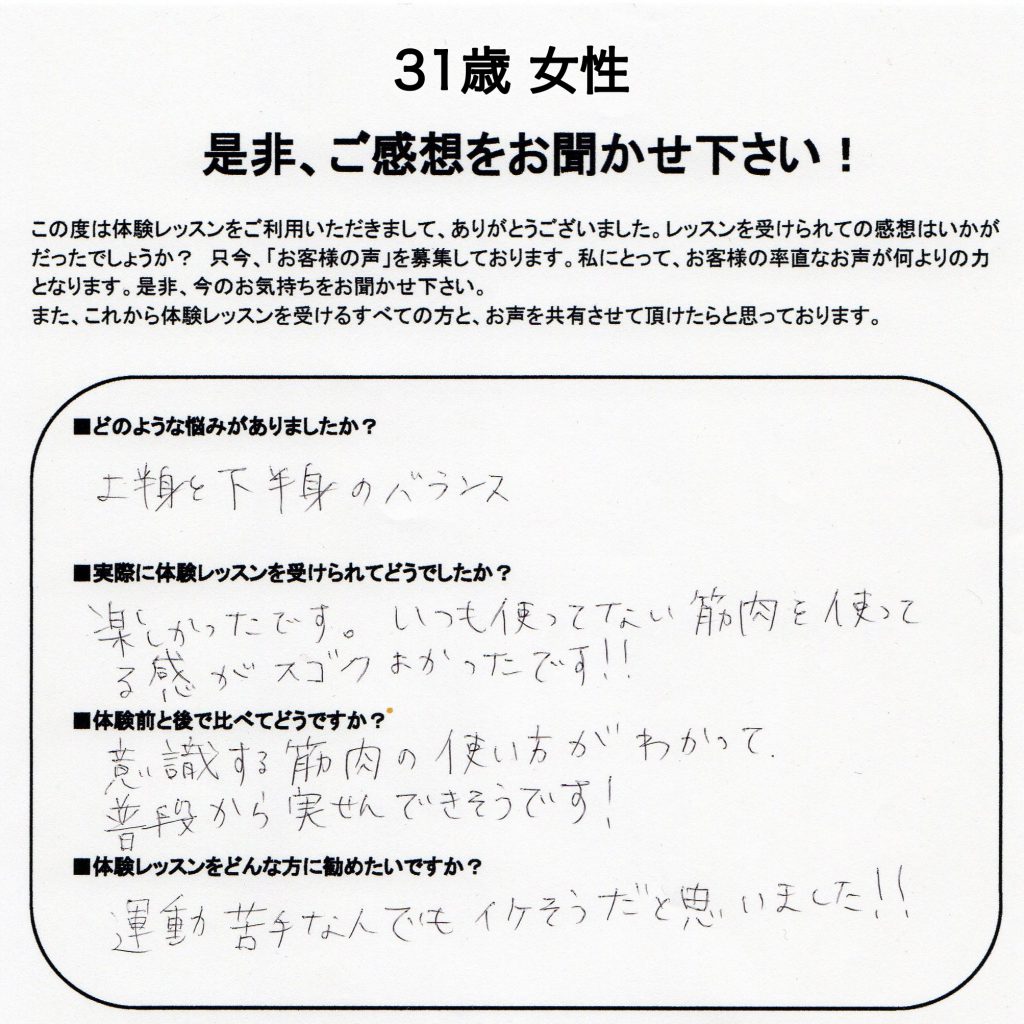 31歳 女性
是非、ご感想をお聞かせ下さい！
この度は体験レッスンをご利用いただきまして、ありがとうございました。レッスンを受けられての感想はいかが
だったでしょうか？ 只今、「お客様の声」を募集しております。私にとって、お客様の率直なお声が何よりの力
となります。是非、今のお気持ちをお聞かせ下さい。
また、これから体験レッスンを受けるすべての方と、お声を共有させて頂けたらと思っております。
■どのような悩みがありましたか？
上半身と下半身のバランス
■実際に体験レッスンを受けられてどうでしたか？
楽しかったです。いつも使ってない筋肉を使って
る感がスゴクよかったです!!
■体験前と後で比べてどうですか？
意識する筋肉の使い方がわかって、
普段から実せんできそうです!
■体験レッスンをどんな方に勧めたいですか？
運動苦手なんでもイケそうだと思いました!!